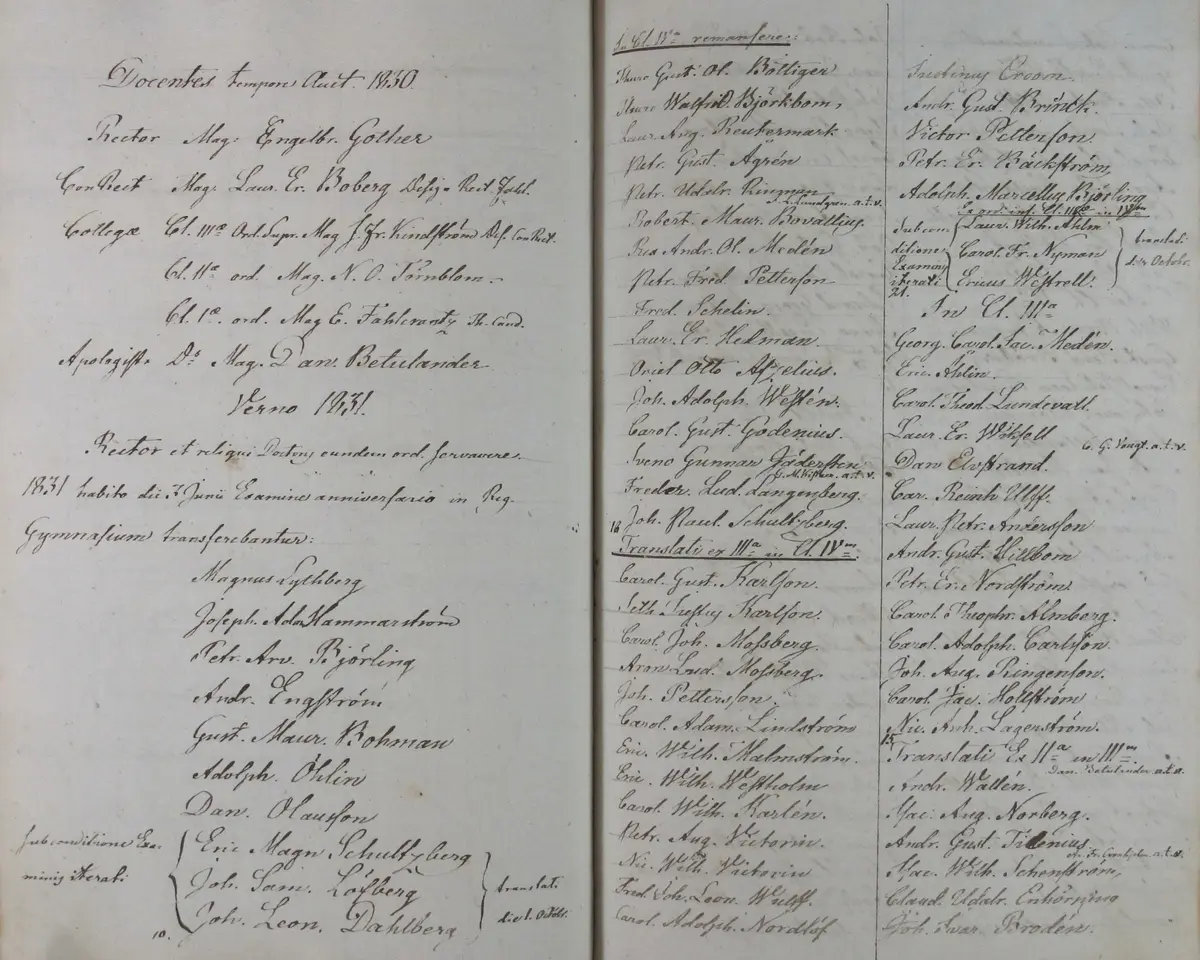 Docentes tempore Auct. 1830.
Rector Mag: Engelbr. Gother
ConRect Mag: Laur. Er. Boberg Desig. Rect. Fahl.
Collegæ Cl. IIIæ Ord. Supr. Mag J. Fr. Kindström Des. ConRect.
Cl. IIæ ord. Mag. N. O. Törnblom
Cl. Iæ. ord. Mag E. Fahlcrantz Th. Cand.
Apologist. Ds. Mag. Dan. Betulander
Verno 1831.
Rector et reliqui Docting eundem ord. servavere.
1831 habito die 7 Junii Examine anniversario in Reg.
Gymnasium transferebantur:
Magnus Sythberg
Joseph. Adam Hammarström
Petr. Arv. Björling
Andr. Engström
Gust. Maur. Bohman
Adolph. Öhlin
Dan. Olausson
sub conditione Exa-
minis iterati
Eric Magn Schultzberg
Joh. Sam. Löfberg
Joh. Leon. Dahlberg
translati
die 1. Octobr.
10.
In Cl. IVa remansere:
Thure Gust. Ol. Böttiger
Thure Walfrid. Björkbom,
Laur. Aug. Reutermark
Petr. Gust. Ågrén
Petr. Uddlr. Rinman
J. L. Lundgren. a.t.v.
Robert. Maur. Bovallius.
Andr. Ol. Medén
Petr. Fred. Petterson
Fred. Schelin.
Laur. Er. Hedman.
Otto Afzelius.
Joh. Adolph. Westén.
Carol. Gust. Godenius.
Sveno Gunnar Södersten
a.t.v.
Freder. Lud. Langenberg.
16 Joh. Paul. Schultzberg.
Translati ex IIIa in Cl. IVm.
Carol. Gust. Karlson.
Seth Karlson.
Carol. Joh. Mossberg.
Aron Lud. Mossberg.
Joh. Pettersson.
Carol. Adam. Lindström
Eric. Wilh. Malmström.
Eric. Wilh. Westholm
Carol. Wilh. Karlén.
Petr. Aug. Victorin.
Nic. Wilh. Victorin
Fred. Joh. Leon. Wulff.
Carol. Adolph. Nordlöf
Justinus Croon.
Andr. Gust. Brinck.
Victor Petterson.
Petr. Er. Bäckström,
Adolph. Marcellus Björling
Ex ord. inf. Cl. IIIæ in IVm
Sub con-
ditione
Examinis
iterati
Laur. Wilh. Ahlm
Carol. Fr. Nyman
Ericus Westrell.
translati
die Octobr.
21.
In Cl. IIIa
Georg. Carol. Jac. Medén.
Eric. Åhlin.
Carol. Theod. Lundevall
Laur. Er. Wiksell
C. G. Vougt. a.t.v.
Dan Elfstrand.
Car. Reinh Ulff.
Laur. Petr. Andersson
Andr. Gust. Hillbom
Petr. Er. Nordström.
Carol. Theophr. Almberg.
Carol. Adolph. Carlsson.
Joh. Aug. Ringenson.
Carol. Jac. Hollström
Nic. Anh. Lagerström.
15.
Translati Ex IIa in IIIm.
Dan. Betulander a.t.v.
Andr. Wallén.
Isac. Aug. Norberg.
Andr. Gust. Filenius
a.t.v.
Isac. Wilh. Schenström,
Claud. Udalr. Enhörning
Joh. Ivar. Brodén.